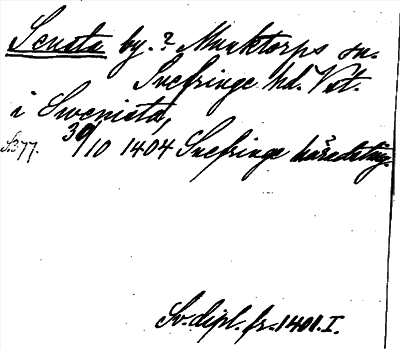 Sensta by.? Munktorps sn.
Snefringe hd. Vstm.
i Swenista,
S. 377. 30/10 1404 Snefringe häredsting.
Sv. dipl. fr. 1401. I.